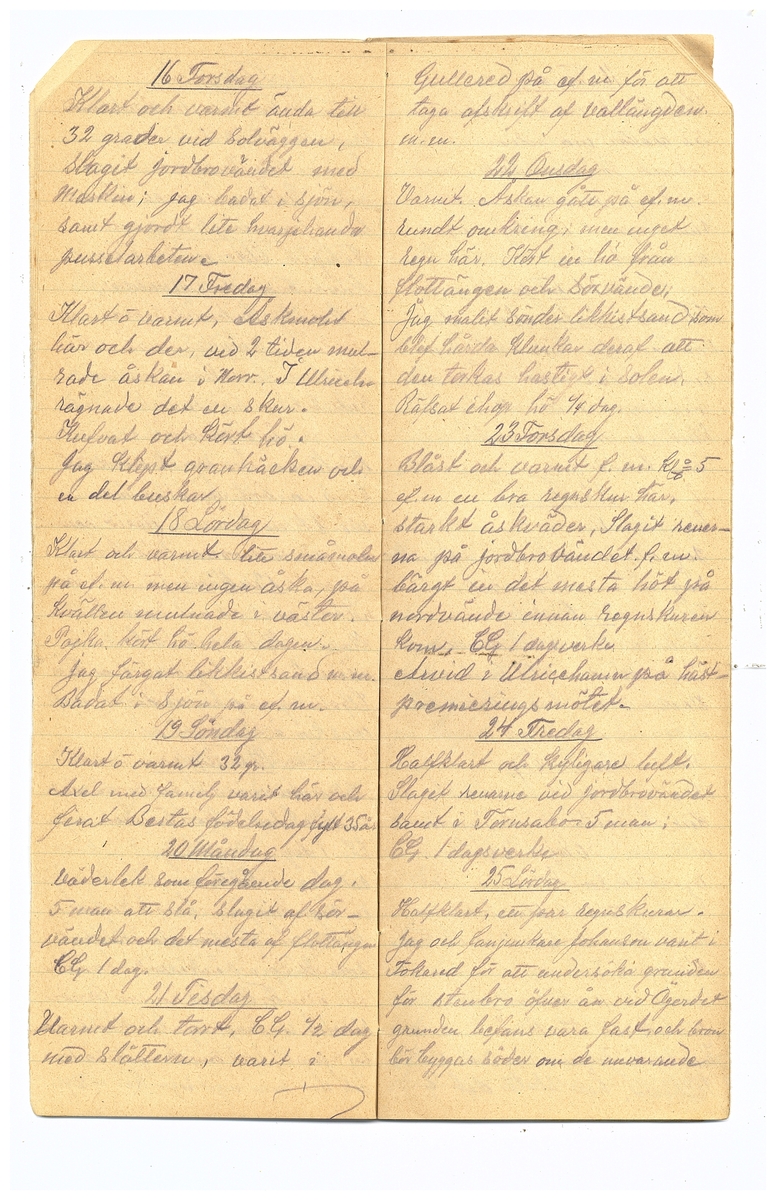 16 Torsdag
Klart och varmt ända till
32 grader vid Solväggen,
Slagit jordbrovändet med
Maskin; jag badat i sjön,
samt gjordt lite hvarjehanda
pusselarbeten.
17 Fredag
Klart o varmt, Askmoln
här och der, vid 2 tiden mul-
rade åskan i Norr. I Ulriceh.
rägnade det en skur.
Kufvat och kört hö.
Jag klipt granhäcken och
en del buskar,
18 Lördag
Klart och varmt. lite småmoln
på ef. m. men ingen åska, på
kvällen mulnade i väster.
Pojka. kört hö hela dagen.
Jag färgat likkistsand m.m.
Badat i Sjön på ef. m.
19 Söndag
Klart o varmt 32 gr.
Axel med familj varit här och
firat Bertas födelsedag fylt 35 år
20 Måndag
väderlek som föregående dag.
5 man att slå, Slagit af Sör-
vändet och det mesta af flottängen
CG. 1 dag.
21 Tisdag
Varmt och torrt, CG. 1/2 dag
med slåttern, varit i
Gullered på ef. m för att
taga afskrift af vallängden.
m.m.
22 Onsdag
Varmt. Åskan gått på ef. m.
rundt omkring, men inget
regn här. Kört in hö från
flottängen och Sörvände,
Jag malit sönder likkistsand som
blef hårda klunkar deraf att
den torkas hastigt i Solen.
Räfsat ihop hö 1/4 dag.
23 Torsdag
Blåst och varmt f. m. Kl. 5
ef. m en bra regnskur här,
starkt åskväder, Slagit rener-
na på jordbrovändet f. m.
bärgt in det mesta höt på
nordvände innan regnskuren
kom. CG 1 dagsverke
Arvid i Ulricehamn på häst-
premieringsmötet.
24 Fredag
Halfklart och kyligare luft.
Slaget renarne vid jordbrovändet
samt i Törnsabo 5 man;
CG. 1 dagsverke
25 Lördag
Halfklart, ett par regnskurar.
Jag och fanjunkare Johanson varit i
Tokared för att undersöka grunden
för stenbro öfver ån vid Ögerdet
grunden befans vara fast och bron
bör byggas söder om de nuvarande